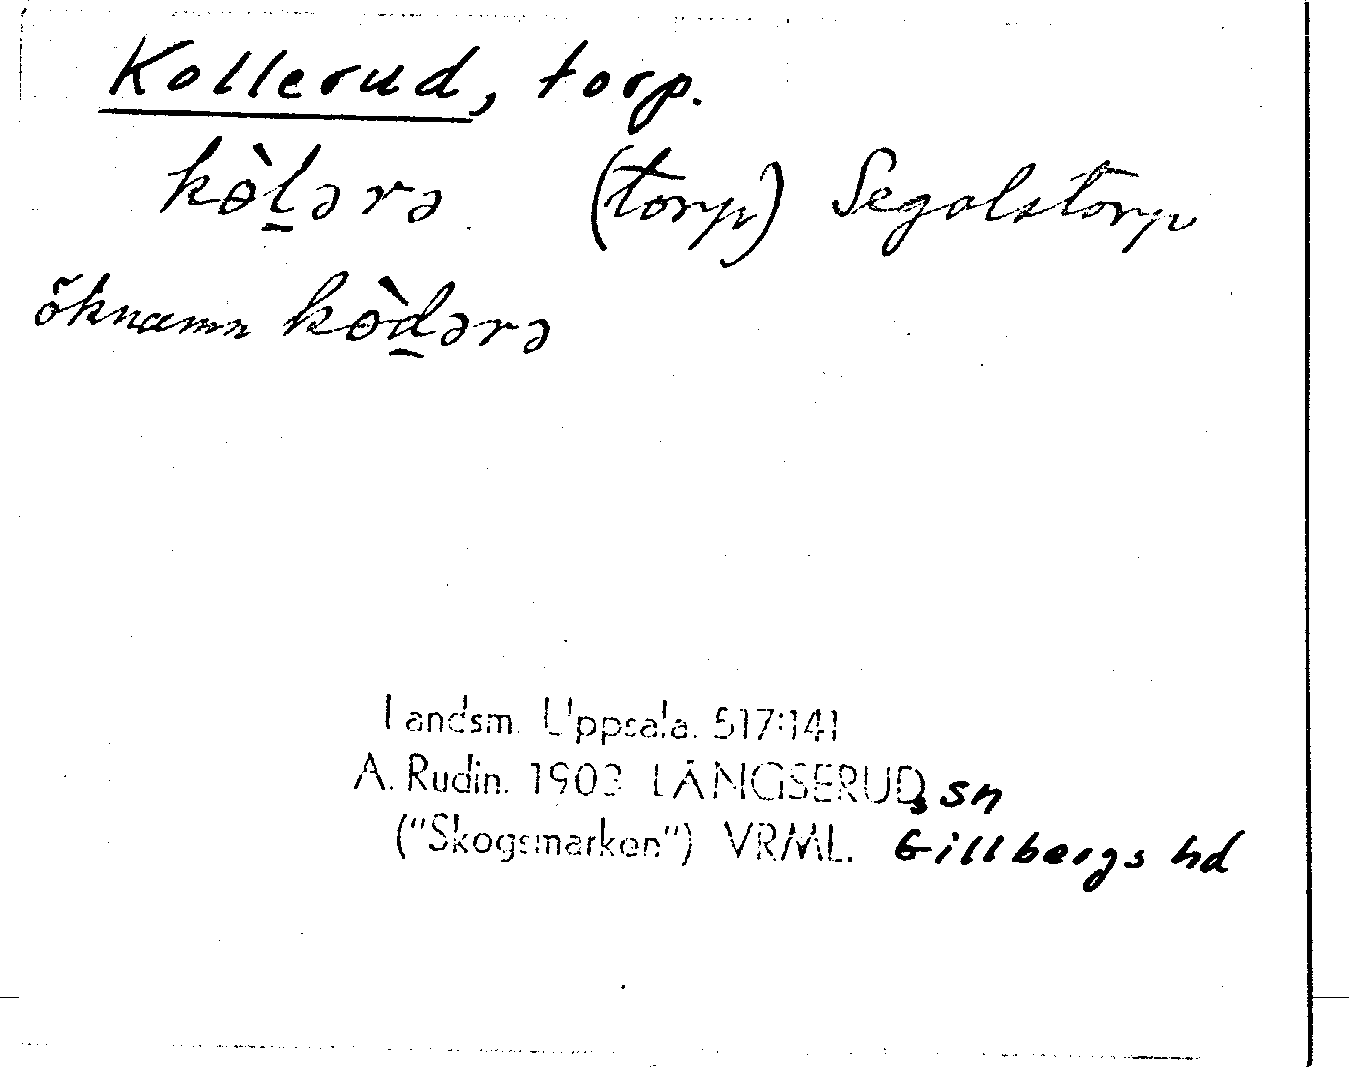 Kollerud, torp.
kɵ̀l̠ərə (torp) Segolstorp
öknamn kɵ̀d̠ərə
Landsm. Uppsala. 517:141
A. Rudin. 1903 LÅNGSERUD, sn
("Skogsmarken") VRML. Gillbergs hd